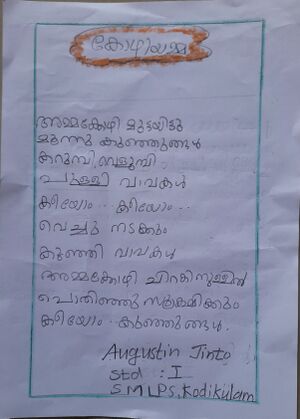 കോഴിയമ്മ
അമ്മക്കോഴി മുട്ടയിട്ടു
മൂന്നു കുഞ്ഞുങ്ങൾ
കറുമ്പി,വെളുമ്പി
പുള്ളി വാവകൾ
കീയോം...കീയോം..
വെച്ചു നടക്കും
കുഞ്ഞി വാവകൾ
അമ്മക്കോഴി ചിറകിനുള്ളിൽ
പൊതിഞ്ഞു സംരക്ഷിക്കും
കീയോം..കുഞ്ഞുങ്ങൾ.
Augustin Jinto
std : I
S.M.L.P.S, Kodikulam